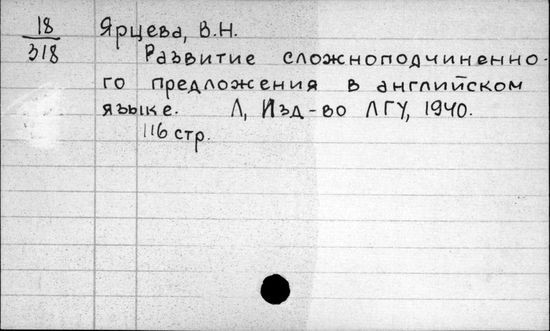 18 Ярцева, В.Н.
318 Развитие сложноподчиненно-
го предложения в английском
языке. Л, Изд-во ЛГУ, 1940.
116 стр.